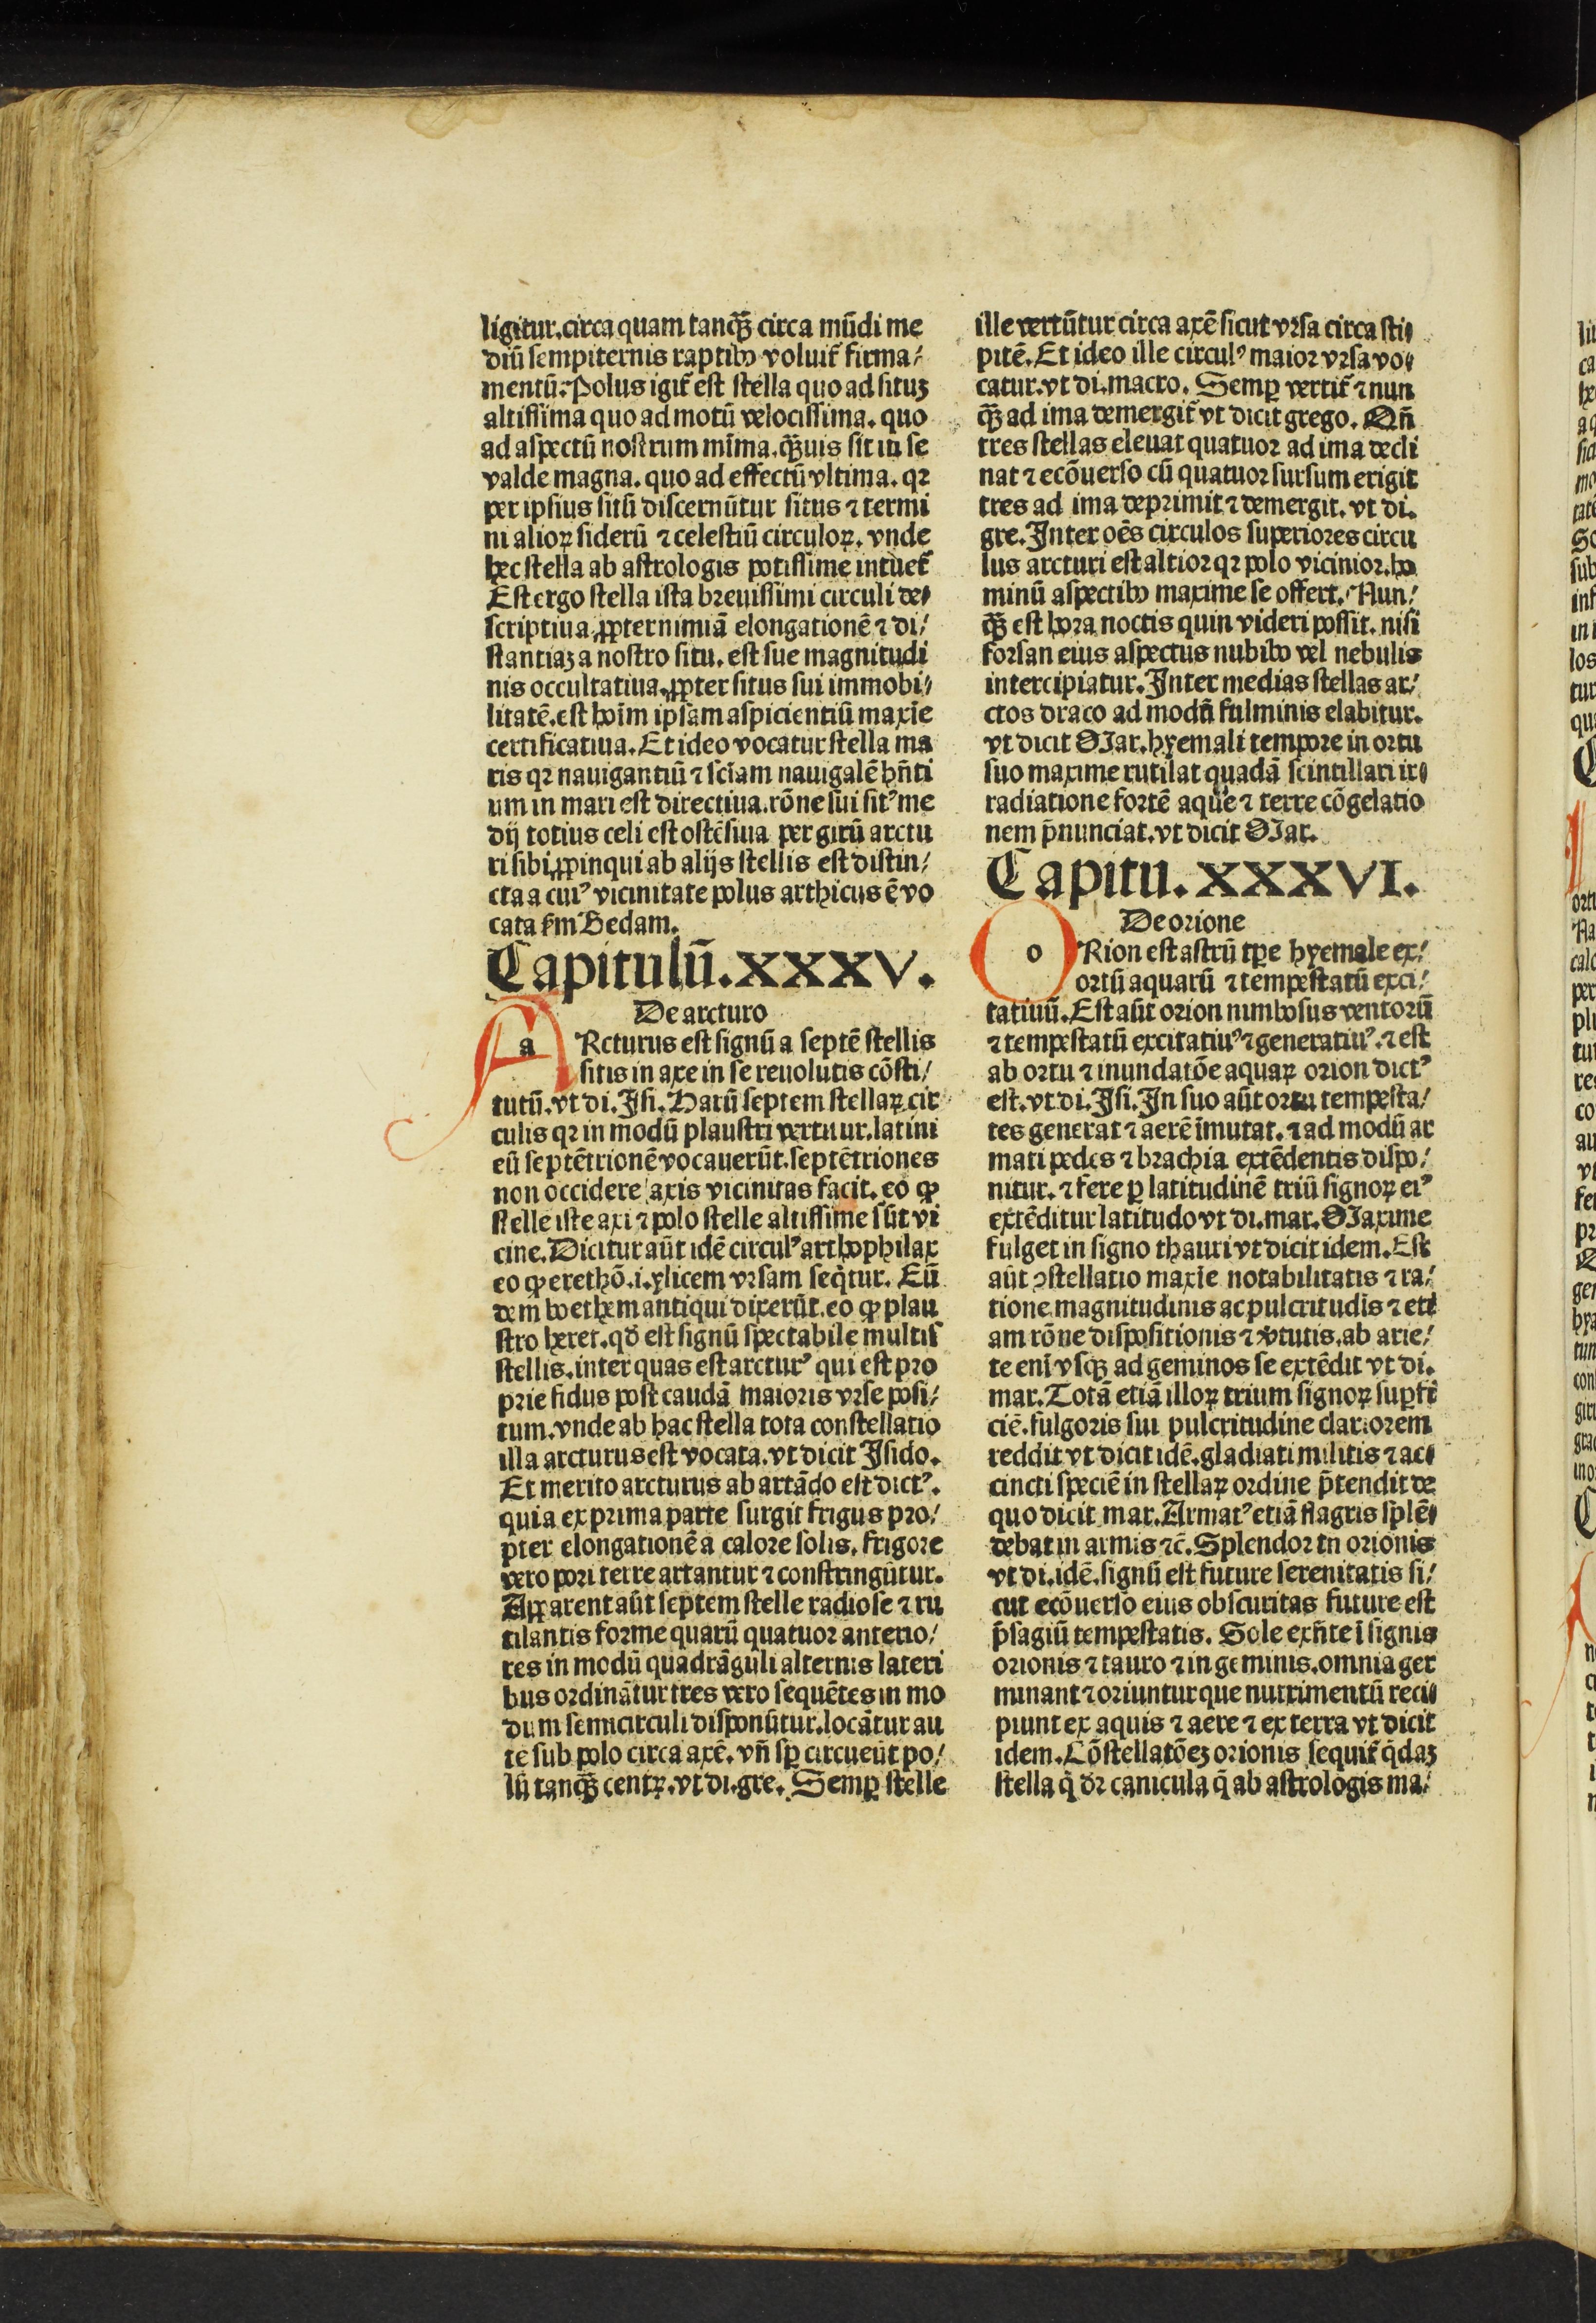 ligitur.circa quam tanq̃ꝫ circa mũdi me
diũ sempiternis raptibꝰ voluit̃ firma⸗
mentũ. Polus igit̃ est stella quo ad situꝫ
altissima quo ad motũ velocissima. quo
ad aspectũ nostrum mĩma. q̃ꝫuis sit in se
valde magna. quo ad effectũ vltima. qꝛ
per ipsius sitũ discernũtur situs ⁊ termi
ni alioꝝ siderũ ⁊ celestiũ circuloꝝ. vnde
hec stella ab astrologis potissime intuet̃
Est ergo stella ista breuissimi circuli de⸗
scriptiua ꝓpter nimiã elongationẽ ⁊ di⸗
stantiaꝫ a nostro situ. est sue magnitudi
nis occultatiua. ꝓpter situs sui immobi⸗
litatẽ. est hoĩm ipsam aspicientiũ maxĩe
certificatiua. Et ideo vocatur stella ma
ris qꝛ nauigantiũ ⁊ sciam nauigalẽ hñti
um in mari est directiua. rõne sui sitꝰ me
dij totius celi est ostẽsiua per girũ arctu
ri sibi ꝓpinqui ab alijs stellis est distin⸗
cta a cuiꝰ vicinitate polus arthicus ẽ vo
cata ẜm Bedam.
Capitulũ. XXXV.
De arcturo
aRcturus est signũ a septẽ stellis
sitis in axe in se reuolutis cõsti⸗
tutũ. vt di. Isi. Harũ septem stellaꝝ cir
culis qꝛ in modũ plaustri vertuur. latini
eũ septẽtrionẽ vocauerũt. septẽtriones
non occidere axis vicinitas facit. eo ꝙ
stelle iste axi ⁊ polo stelle altissime sũt vi
cine. Dicitur aũt idẽ circulꝰ arthophilax
eo ꝙ erethõ .i. ylicem vrsam seq̃tur. Eũ
dem boethem antiqui dixerũt. eo ꝙ plau
stro heret. qd̃ est signũ spectabile multis
stellis. inter quas est arcturꝰ qui est pro
prie sidus post caudã maioris vrse posi⸗
tum. vnde ab hac stella tota constellatio
illa arcturus est vocata. vt dicit Isido.
Et merito arcturus ab artãdo est dictꝰ.
quia ex prima parte surgit frigus pro⸗
pter elongationẽ a calore solis. frigore
vero pori terre artantur ⁊ constringũtur.
Apparent aũt septem stelle radiose ⁊ ru
tilantis forme quarũ quatuor anterio⸗
res in modũ quadrãguli alternis lateri
bus ordinãtur tres vero sequẽtes in mo
dum semicirculi disponũtur. locãtur au
tẽ sub polo circa axẽ. vñ sꝑ circueũt po⸗
lũ tanq̃ꝫ centꝝ. vt di. gre. Semꝑ stelle
ille vertũtur circa axẽ sicut vrsa circa sti⸗
pitẽ. Et ideo ille circulꝰ maior vrsa vo⸗
catur. vt di. macro. Semꝑ vertit̃ ⁊ nun
q̃ꝫ ad ima demergit̃ vt dicit grego. Qñ
tres stellas eleuat quatuor ad ima decli
nat ⁊ ecõuerso cũ quatuor sursum erigit
tres ad ima deprimit ⁊ demergit. vt di.
gre. Inter oẽs circulos superiores circu
lus arcturi est altior qꝛ polo vicinior. ho
minũ aspectibꝰ maxime se offert. Nun⸗
q̃ꝫ est hora noctis quin videri possit. nisi
forsan eius aspectus nubibꝰ vel nebulis
intercipiatur. Inter medias stellas ar⸗
ctos draco ad modũ fulminis elabitur.
vt dicit Mar. hyemali tempore in ortu
suo maxime rutilat quadã scintillari ir⸗
radiatione fortẽ aque ⁊ terre cõgelatio
nem p̃nunciat. vt dicit Mar.
Capitu. XXXVI.
De orione
oRion est astrũ tꝑe hyemale ex⸗
ortũ aquarũ ⁊ tempestatũ exci⸗
tatiuũ. Est aũt orion nimbosus ventorũ
⁊ tempestatũ excitatiuꝰ ⁊ generatiuꝰ. ⁊ est
ab ortu ⁊ inundatõe aquaꝝ orion dictꝰ
est. vt di. Isi. In suo aũt ortu tempesta⸗
tes generat ⁊ aerẽ ĩmutat. ⁊ ad modũ ar
mati pedes ⁊ brachia extẽdentis dispo⸗
nitur. ⁊ fere ꝑ latitudinẽ triũ signoꝝ eiꝰ
extẽditur latitudo vt di. mar. Maxime
fulget in signo thauri vt dicit idem. Est
aũt ꝯstellatio maxĩe notabilitatis ⁊ ra⸗
tione magnitudinis ac pulcritudĩs ⁊ eti
am rõne dispositionis ⁊ v̾tutis. ab arie⸗
te enĩ vsqꝫ ad geminos se extẽdit vt di.
mar. Totã etiã illoꝝ trium signoꝝ suꝑfi
ciẽ. fulgoris sui pulcritudine clariorem
reddit vt dicit idẽ. gladiati militis ⁊ ac⸗
cincti speciẽ in stellaꝝ ordine p̃tendit de
quo dicit mar. Armatꝰ etiã flagris splẽ⸗
debat in armis ⁊c̃. Splendor tñ orionis
vt di. idẽ. signũ est future serenitatis si⸗
cut ecõuerso eius obscuritas future est
p̃sagiũ tempestatis. Sole exñte ĩ signis
orionis ⁊ tauro ⁊ in geminis. omnia ger
minant ⁊ oriuntur que nutrimentũ reci⸗
piunt ex aquis ⁊ aere ⁊ ex terra vt dicit
idem. Cõstellatõeꝫ orionis sequit̃ q̃daꝫ
stella q̃ dꝛ canicula q̃ ab astrologis ma⸗